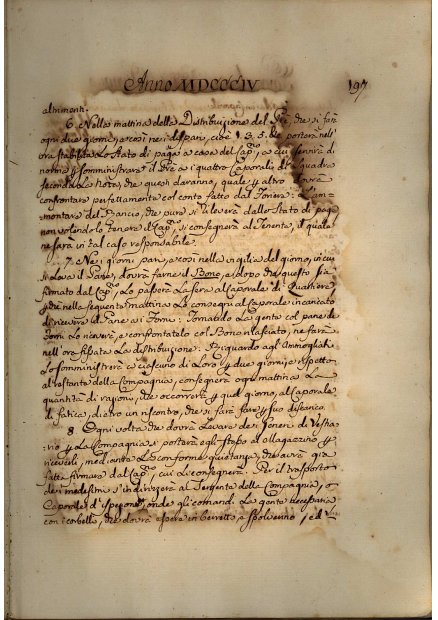 Anno MDCCCIV 197
altrimenti.
6. Nella mattina della Distribuzione del Prè, che si farà
ogni due giorni, e così nei dispari, cioè 1. 3. 5. &c. porterà nell'
ora stabilita lo stato di paga a casa del Cap.no, a cui servirà di
norma p somministrare il Prè ai quattro Caporali di Squadra
secondo la nota, che questi daranno, quale p altro dovrà
confrontare perfettamente col conto fatto dal Foriere: L'am=
montare del Rancio, che pure si rileverà dallo Stato di paga
non volendolo tenere il Cap.no, si consegnerà al Tenente, il quale
ne sarà in tal caso responsabile.
7. Nei giorni pari, e così nella vigilia del giorno, in cui
si leva il Pane, dovrà farne il Bono, e dopo che questo sia
firmato dal Cap.no, lo passerà la sera al Caporale di Quartiere
p che nella seguente mattina lo consegni al Caporale incaricato
di ricevere il Pane ai Forni. Tornata la gente col pane dai
Forni lo riceverà, e confrontatelo col Bono rilasciato, ne farà
nell'ore fissate la distribuzione: Riguardo agl'Ammogliati
lo somministrerà a ciascuno di loro p due giorni, e rispetto
al restante della Compagnia, consegnerà ogni mattina la
quantità di razioni, che occorrerà p quel giorno, al Caporale
di fatica, dietro un riscontro, che si farà fare p suo discarico.
8. Ogni volta che dovrà levare dei generi di Vestia=
rio p la Compagnia si porterà egli stesso al Magazzino p
riceverli, mediante la conforme quietanza, che avrà già
fatta firmare dal Cap.no, cui li consegnerà. Per il trasporto
dei medesimi s'indirizzerà al Sergente della Compagnia, o
Caporale d'Ispezione, onde gli comandi la gente necessaria
con i corbelli, che dovrà essere in berretto e spolverino, ed